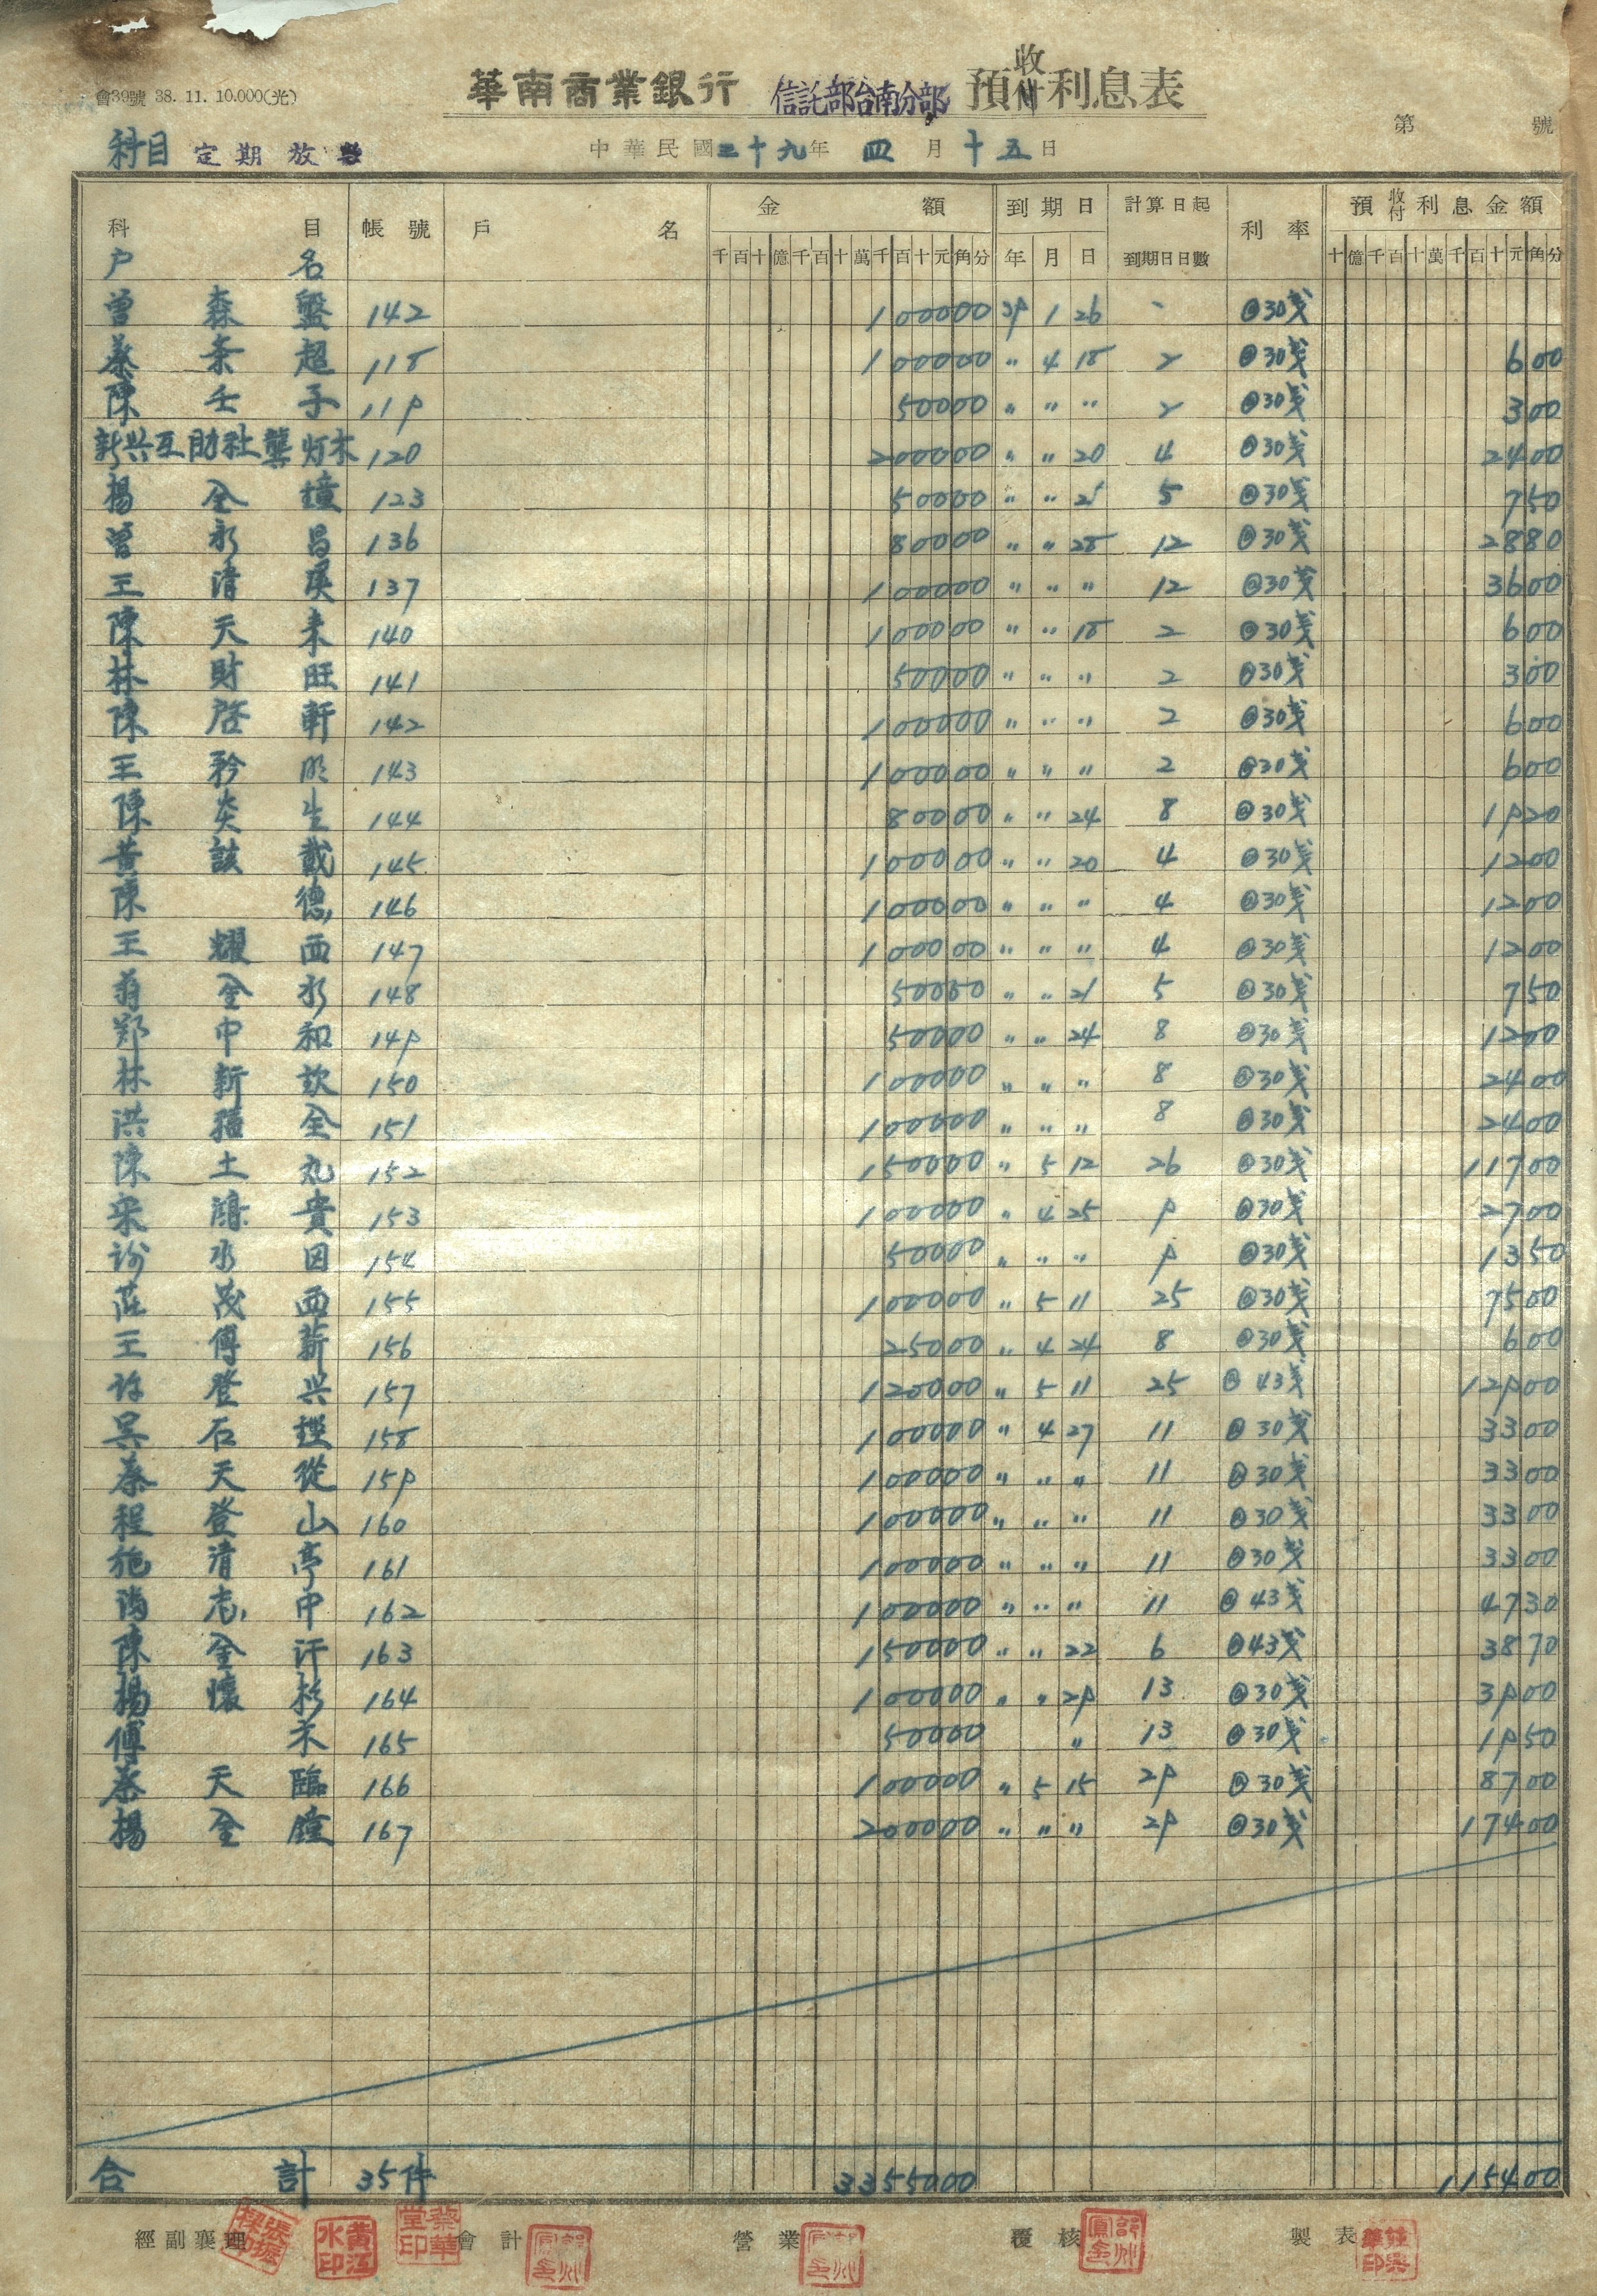 會39號 38. 11. 10.000(光)
華南商業銀行 信託部台南分部 預收付利息表
第 號
科目 定期放款
中華民國三十九年 四月 十五日
科目 帳號 戶名 金額 到期日 計算日起到期日日數 利率 預收付利息金額
户名 千百十億千百十萬千百十元角分 年 月 日 十億千百十萬千百十元角分
曾森盤 142 100000 39 1 26 - @30戔
蔡条超 118 100000 〃 4 18 2 @30戔 600
陳壬子 119 50000 〃 〃 〃 2 @30戔 300
新兴互助社龔灯木 120 200000 〃 〃 20 4 @30戔 2400
楊全鐘 123 50000 〃 〃 21 5 @30戔 750
曾永昌 136 80000 〃 〃 28 12 @30戔 2880
王清 137 100000 〃 〃 〃 12 @30戔 3600
陳天来 140 100000 〃 〃 18 2 @30戔 600
林財旺 141 50000 〃 〃 〃 2 @30戔 300
陳啓軒 142 100000 〃 〃 〃 2 @30戔 600
王 143 100000 〃 〃 〃 2 @30戔 600
陳炎生 144 80000 〃 〃 24 8 @30戔 1920
黄該戴 145 100000 〃 〃 20 4 @30戔 1200
陳德 146 100000 〃 〃 〃 4 @30戔 1200
王耀西 147 100000 〃 〃 〃 4 @30戔 1200
翁全水 148 50000 〃 〃 21 5 @30戔 750
鄭中和 149 50000 〃 〃 24 8 @30戔 1200
林新欽 150 100000 〃 〃 〃 8 @30戔 2400
洪全 151 100000 〃 〃 〃 8 @30戔 2400
陳土丸 152 150000 〃 5 12 26 @30戔 11700
貴 153 100000 〃 4 25 9 @30戔 2700
水因 154 50000 〃 〃 〃 9 @30戔 1350
莊茂西 155 100000 〃 5 11 25 @30戔 7500
王傅薪 156 25000 〃 4 24 8 @30戔 600
許登兴 157 120000 〃 5 11 25 @43戔 12900
吴石 158 100000 〃 4 27 11 @30戔 3300
蔡天從 159 100000 〃 〃 〃 11 @30戔 3300
程登山 160 100000 〃 〃 〃 11 @30戔 3300
施清亭 161 100000 〃 〃 〃 11 @30戔 3300
志中 162 100000 〃 〃 〃 11 @43戔 4730
陳全汗 163 150000 〃 〃 22 6 @43戔 3870
楊懷杉 164 100000 〃 〃 29 13 @30戔 3900
傅禾 165 50000 〃 13 @30戔 1950
蔡天臨 166 100000 〃 5 15 29 @30戔 8700
楊全鐘 167 200000 〃 〃 〃 29 @30戔 17400
合計 35件 3355000 115400
經副襄理 會計 營業 覆核 製表
黃江水印 蔡華堂印